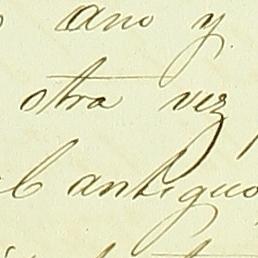 ano y
otra vez
el antiguo